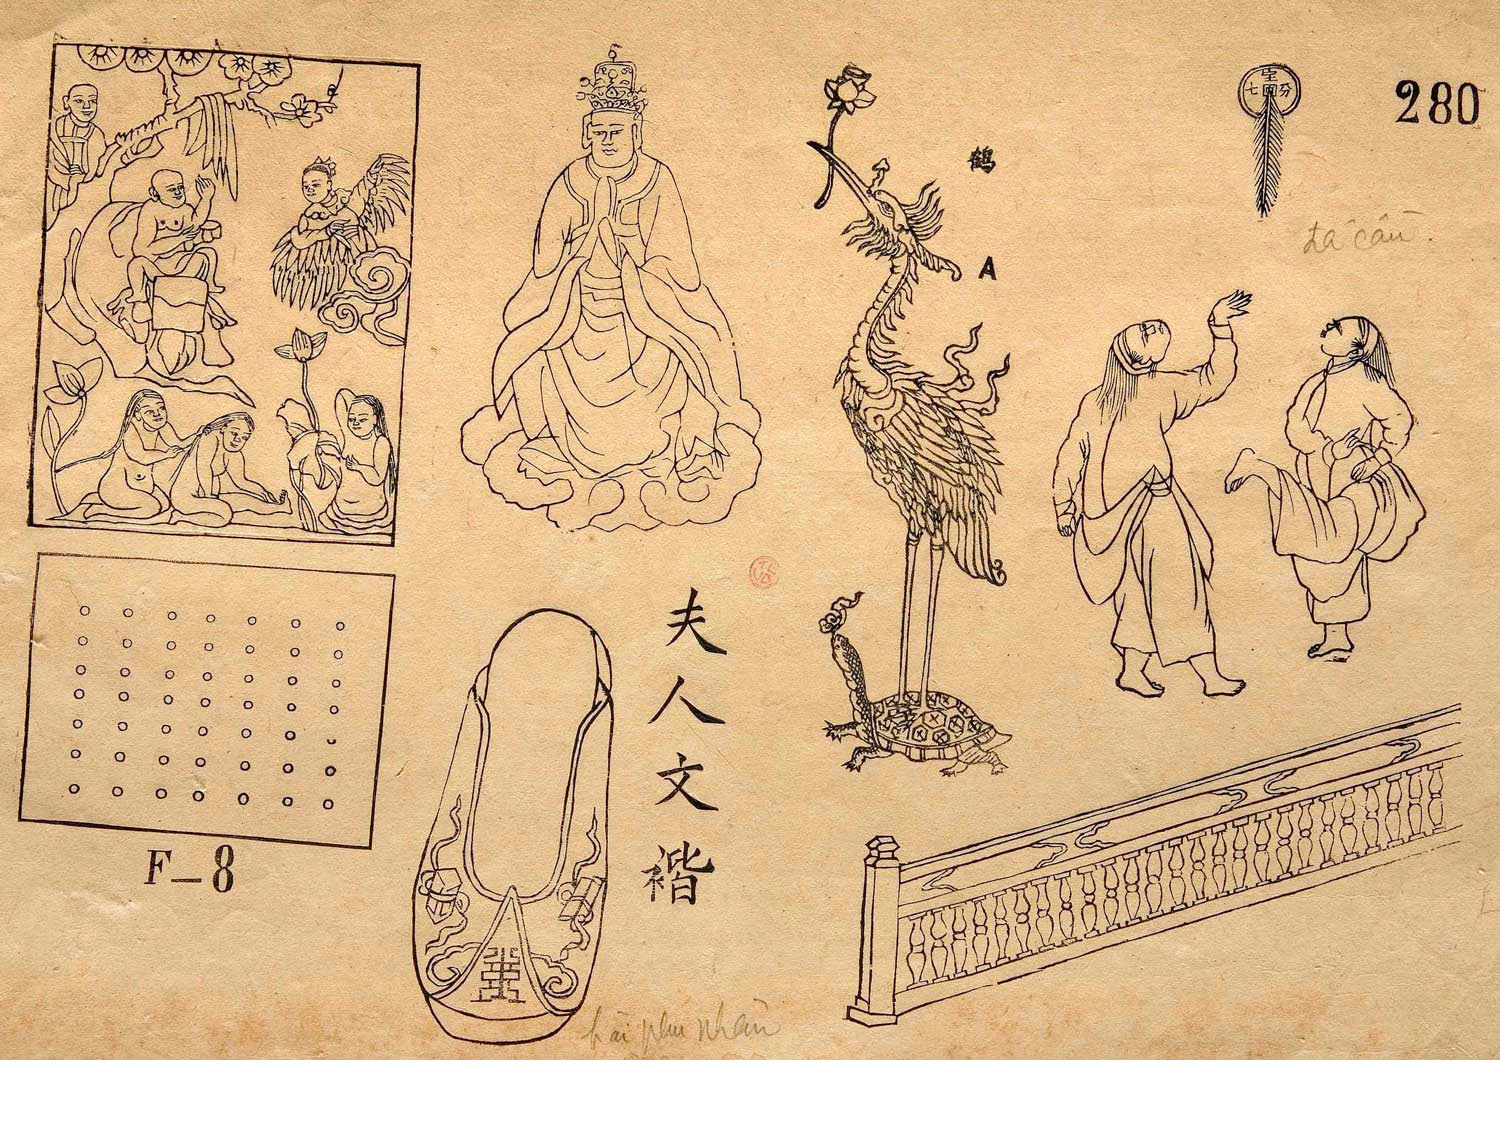 280
鶴
A
đá cầu.
夫
人
文
F_8
hài phu nhân